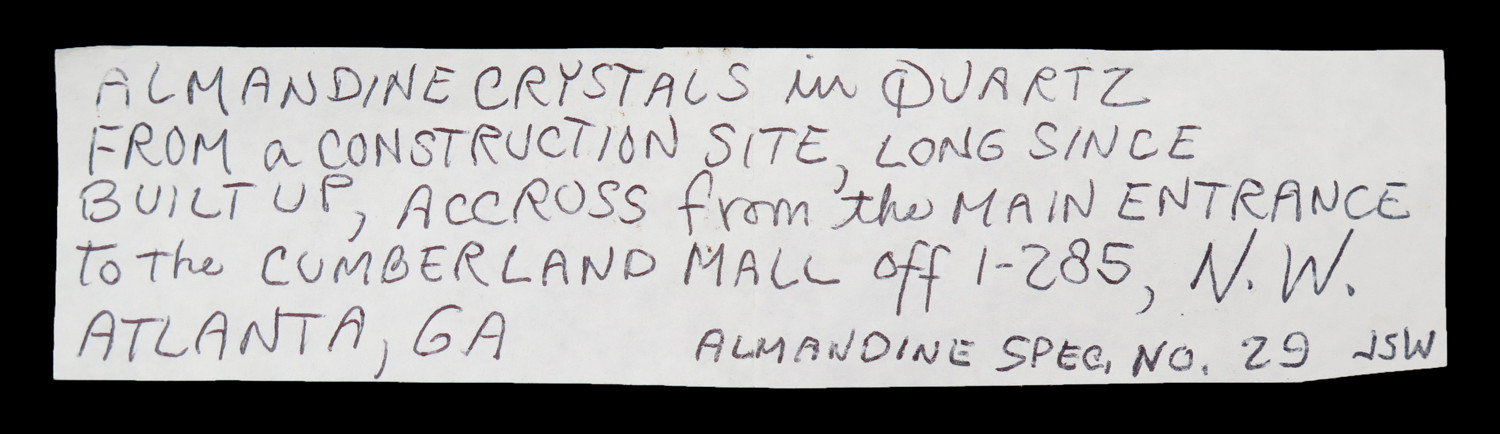 ALMANDINE CRYSTALS in QUARTZ
FROM a CONSTRUCTION SITE, LONG SINCE
BUILT UP, ACCROSS from the MAIN ENTRANCE
to The CUMBERLAND MALL off I-285, N.W.
ATLANTA, GA ALMANDINE SPEC. NO. 29 JSW